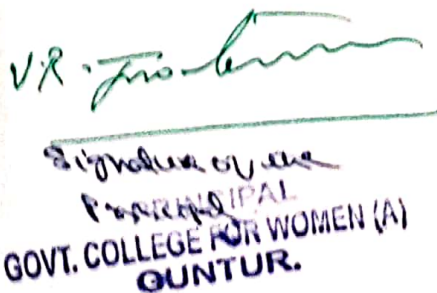 V.R.
Signature of the
Principal
PRINCIPAL
GOVT. COLLEGE FOR WOMEN (A)
GUNTUR.